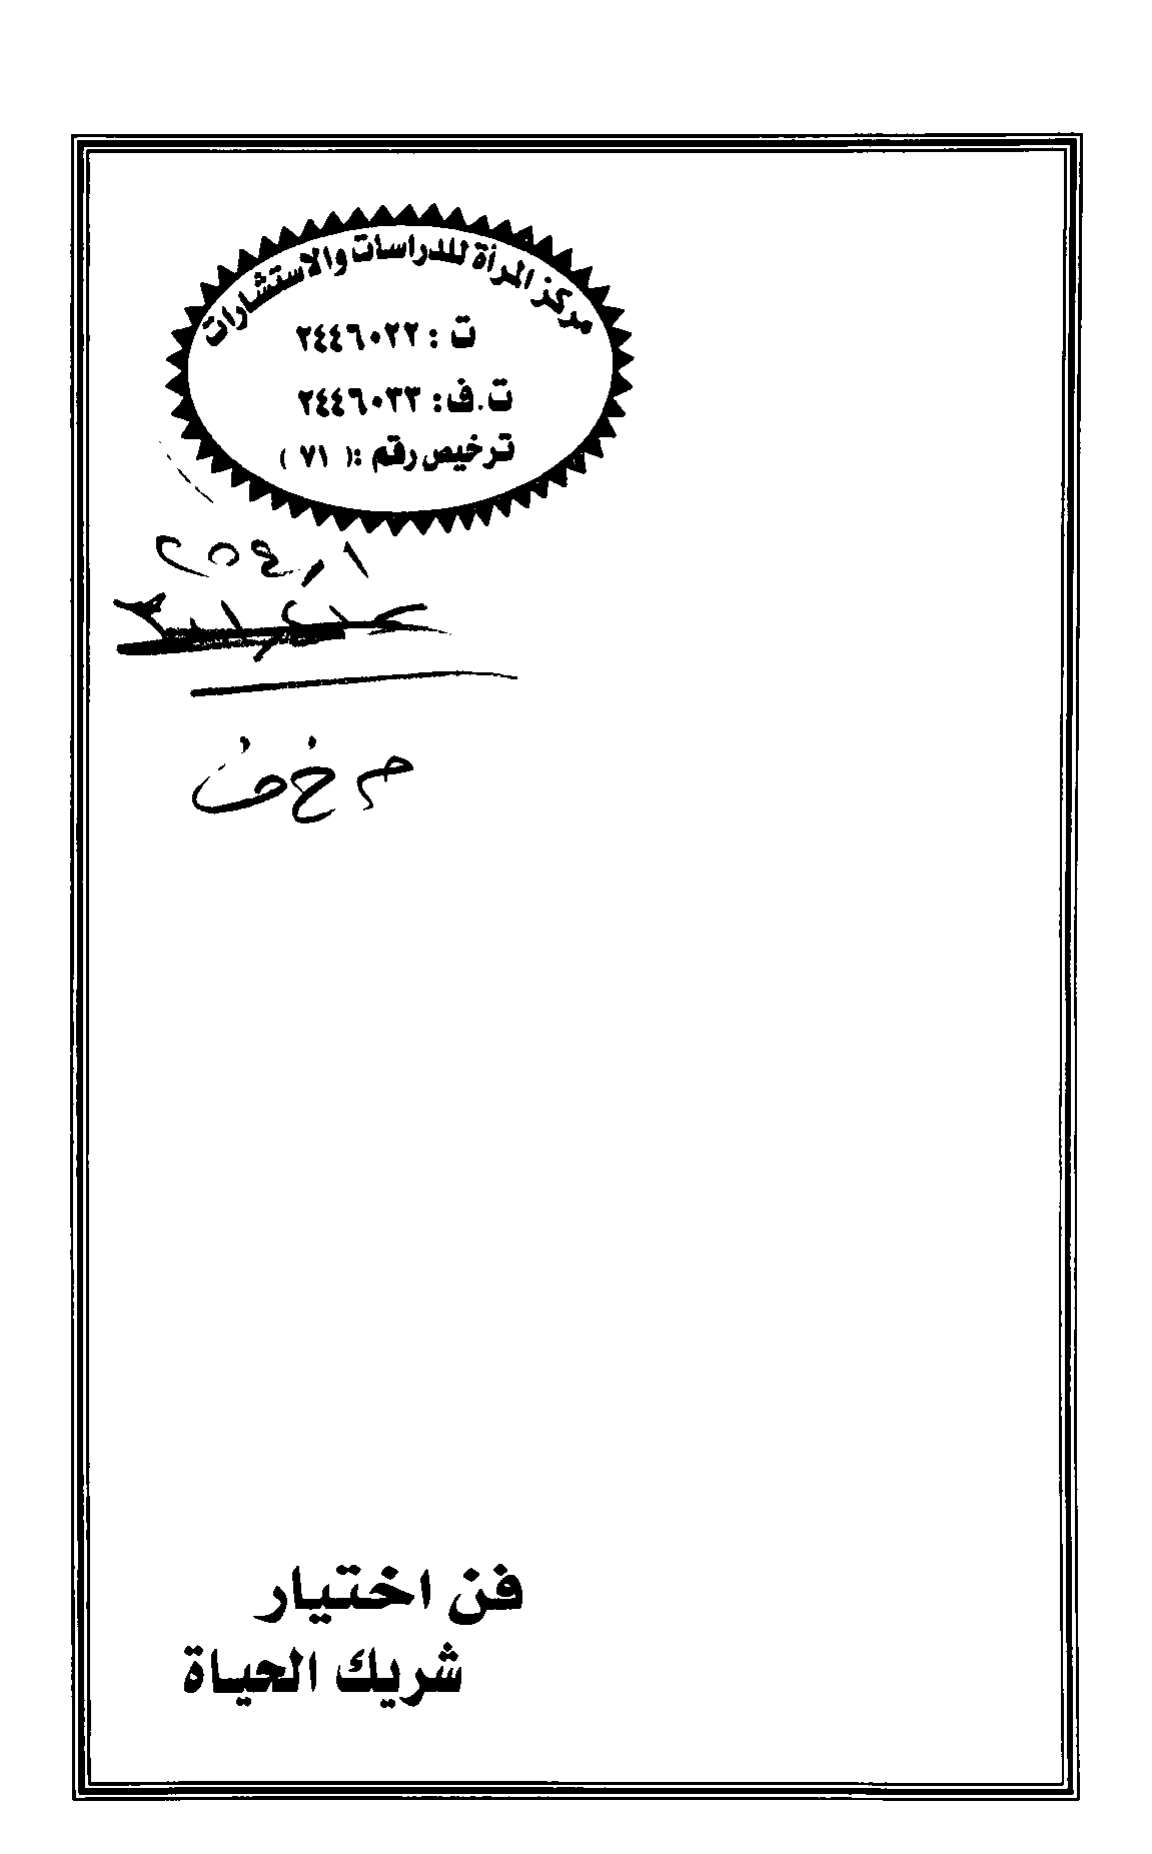 مركز المرأة للدراسات والاستشارات
ت : ٢٤٤٦٠٢٢
ت.ف: ٢٤٤٦٠٣٣
ترخيص رقم :( ٧١ )
م خ ف
فن اختيار
شريك الحياة